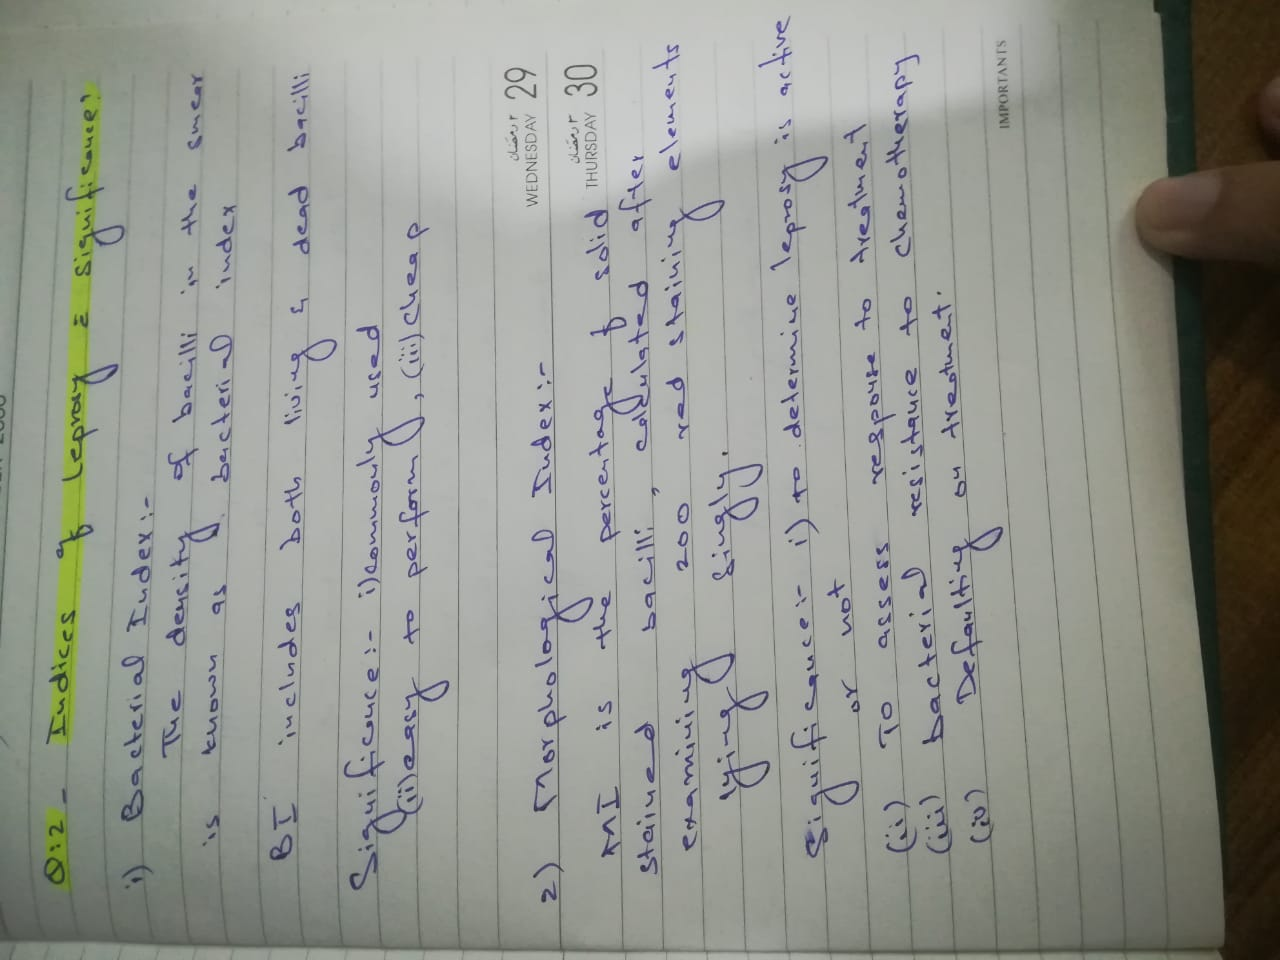 Q:2- Indices of Leprosy c̄ Significance:
i) Bacterial Index:-
The density of bacilli in the smear
is known as bacterial index
BI includes both living & dead bacilli
Significance:- i) commonly used
(ii) easy to perform, (iii) cheap
WEDNESDAY 29
2) Morphological Index:-
THURSDAY 30
MI is the percentage of solid
stained bacilli, calculated after
examining 200 red staining elements
lying singly.
Significance:- i) to determine leprosy is active
or not
(ii) To assess response to treatment
(iii) bacterial resistance to chemotherapy
(iv) Defaulting on treatment.
IMPORTANTS